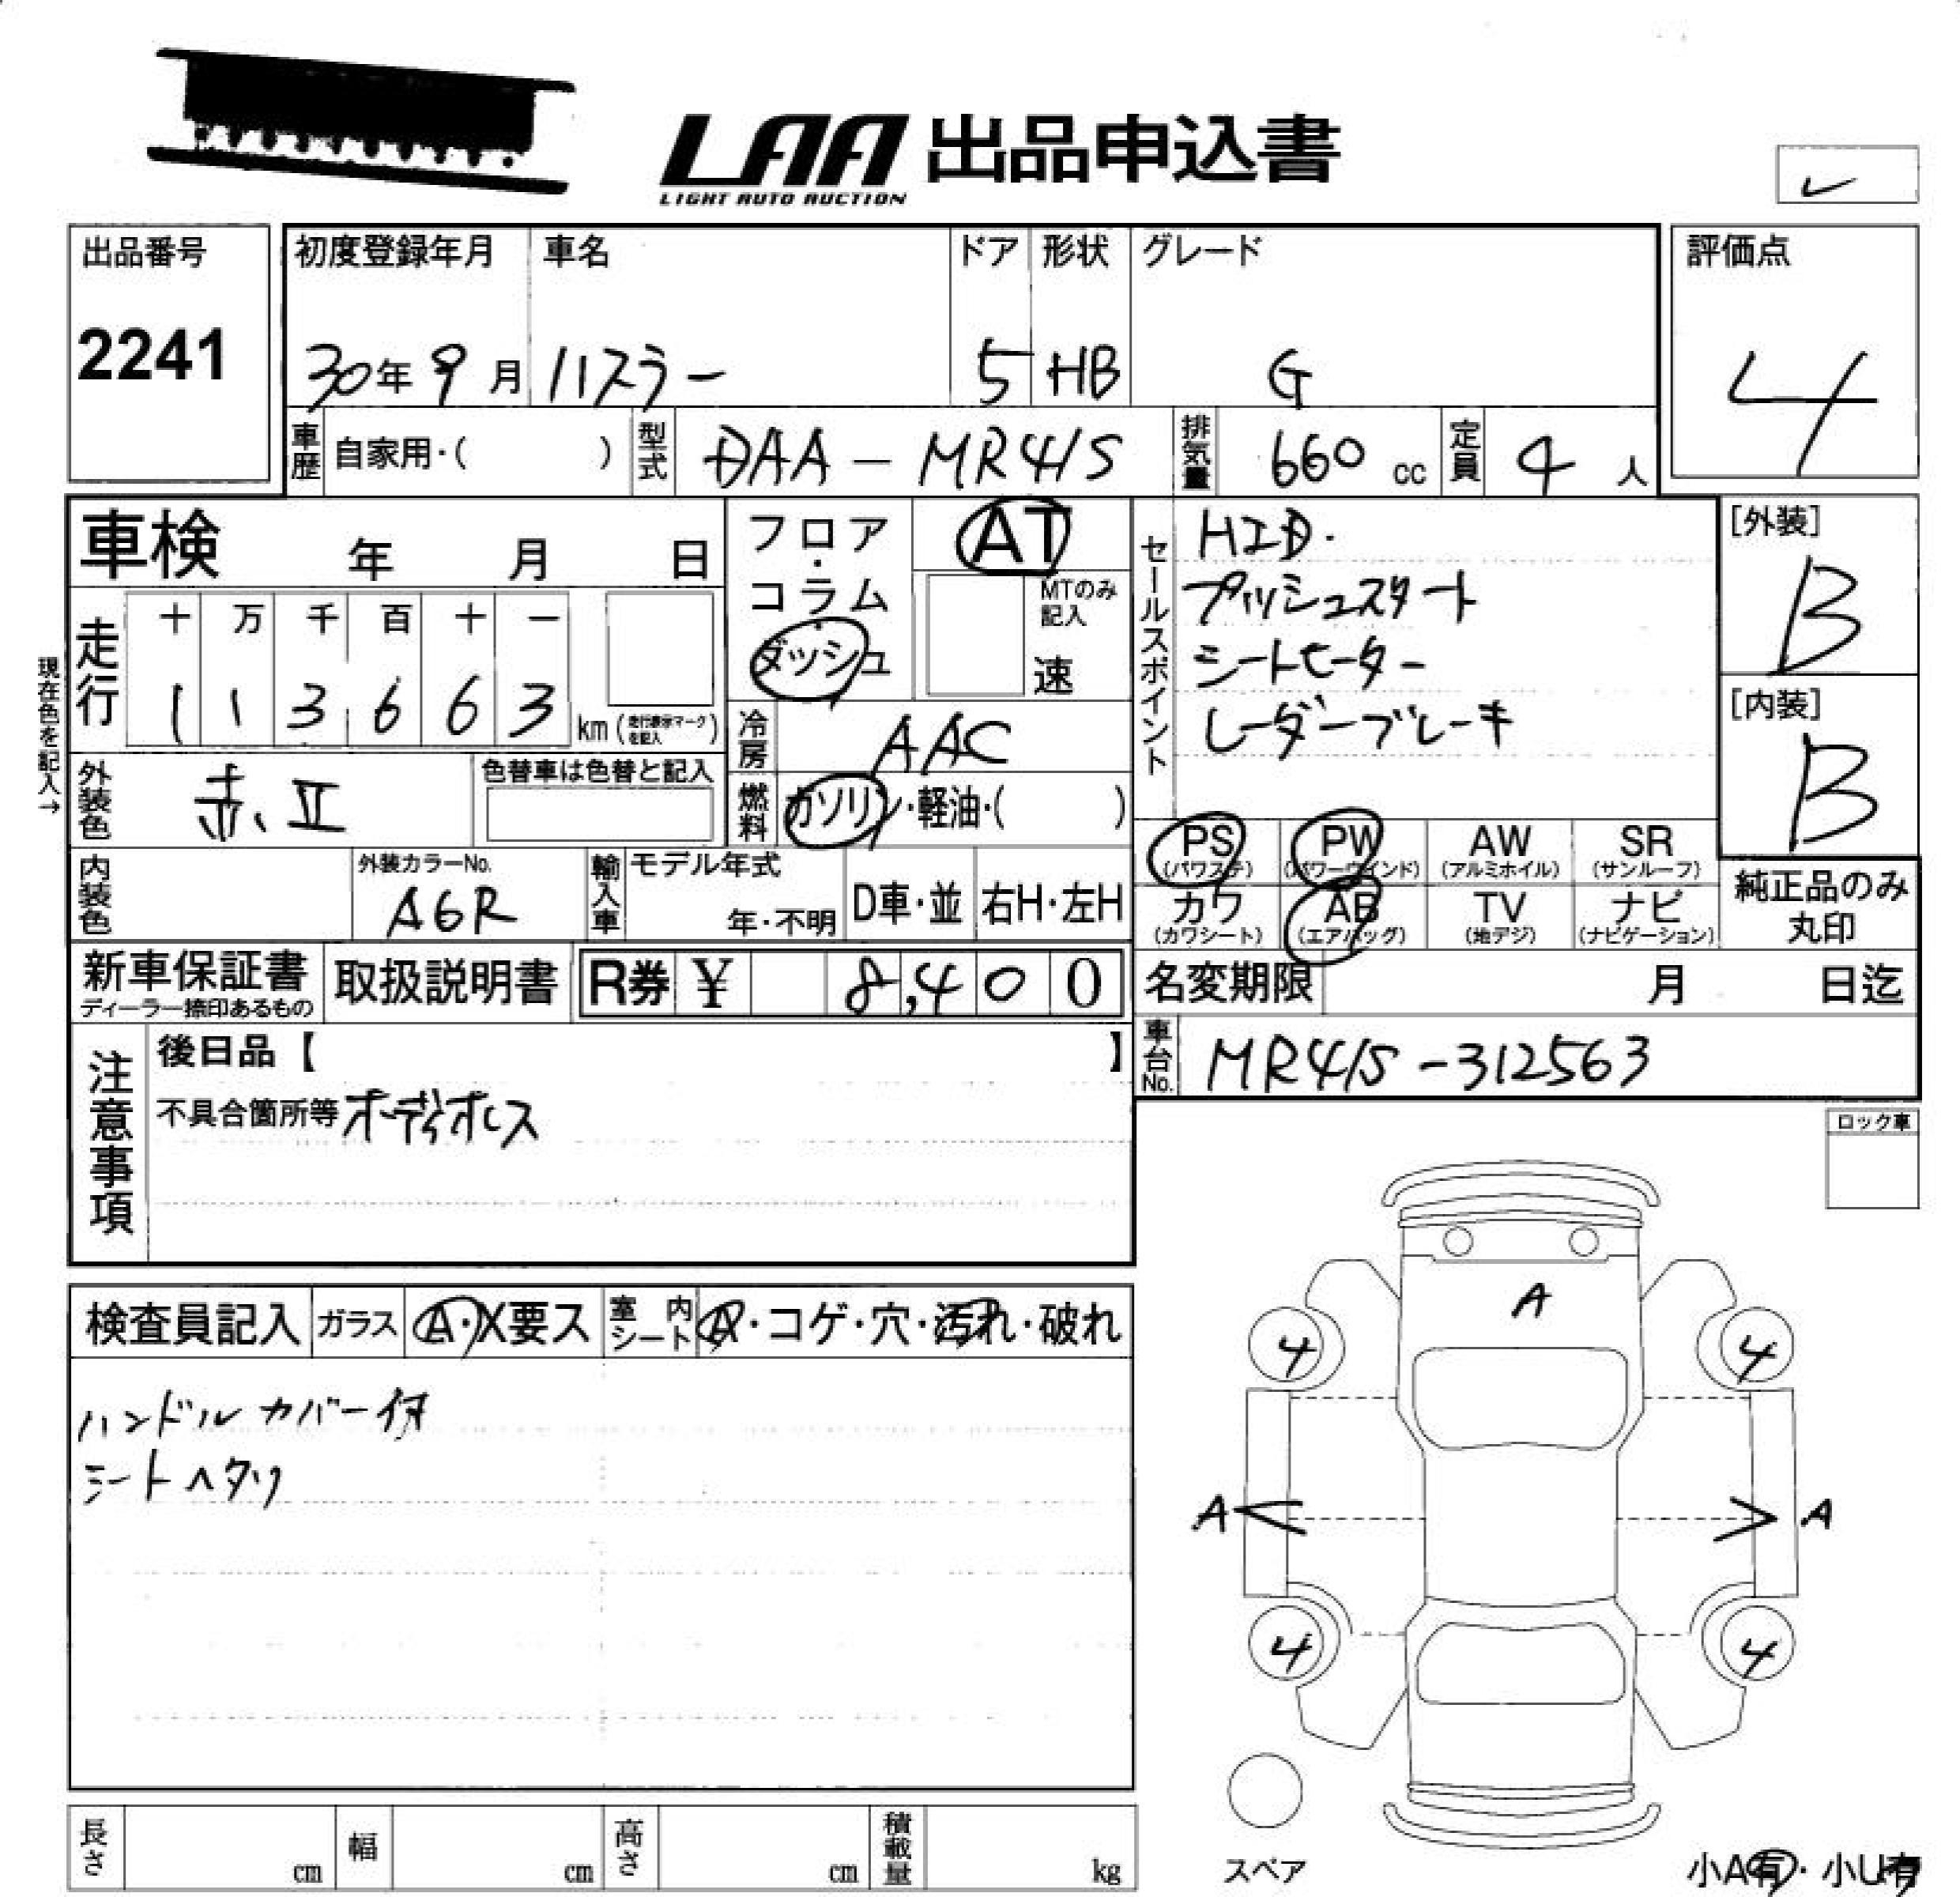 LAA 出品申込書
LIGHT AUTO AUCTION
出品番号
2241
初度登録年月
30年 9月
車名
ハスラー
ドア
5
形状
HB
グレード
G
評価点
4
車歴 自家用・( )
型式 DAA-MR41S
排気量 660 cc
定員 4 人
車検 年 月 日
フロア・コラム・ダッシュ
AT
MTのみ記入
速
セールスポイント
HID.
プッシュスタート
シートヒーター
レーダーブレーキ
[外装]
B
[内装]
B
現在色を記入→
走行
十 万 千 百 十 一
1 1 3 6 6 3 km (走行表示マークを記入)
冷房 AAC
燃料 ガソリン・軽油・( )
外装色 赤、II
色替車は色替と記入
PS (パワステ) PW (パワーウインド) AW (アルミホイル) SR (サンルーフ)
カワ (カワシート) AB (エアバッグ) TV (地デジ) ナビ (ナビゲーション)
純正品のみ丸印
内装色
外装カラーNo.
A6R
輸入車 モデル年式
年・不明
D車・並 右H・左H
新車保証書
ディーラー捺印あるもの
取扱説明書
R券 ¥ 8,400
名変期限 月 日迄
車台No. MR41S-312563
注意事項
後日品【 】
不具合箇所等 オーディオレス
ロック車
検査員記入 ガラス A・X要ス 室内シート A・コゲ・穴・汚れ・破れ
ハンドルカバー付
シートヘタリ
A
4 4
A A
4 4
スペア
長さ cm 幅 cm 高さ cm 積載量 kg
小A有・小U有